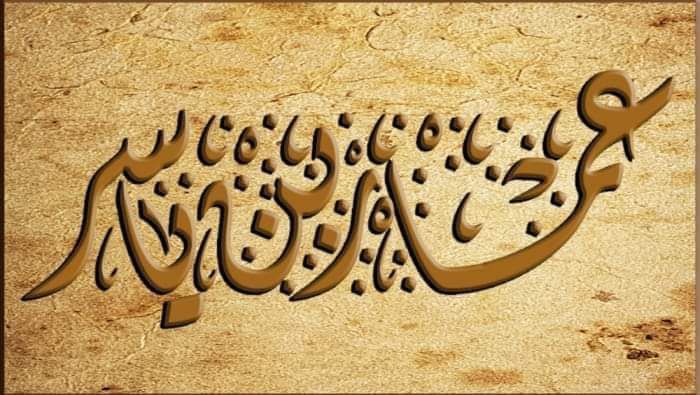 عمار بن ياسر